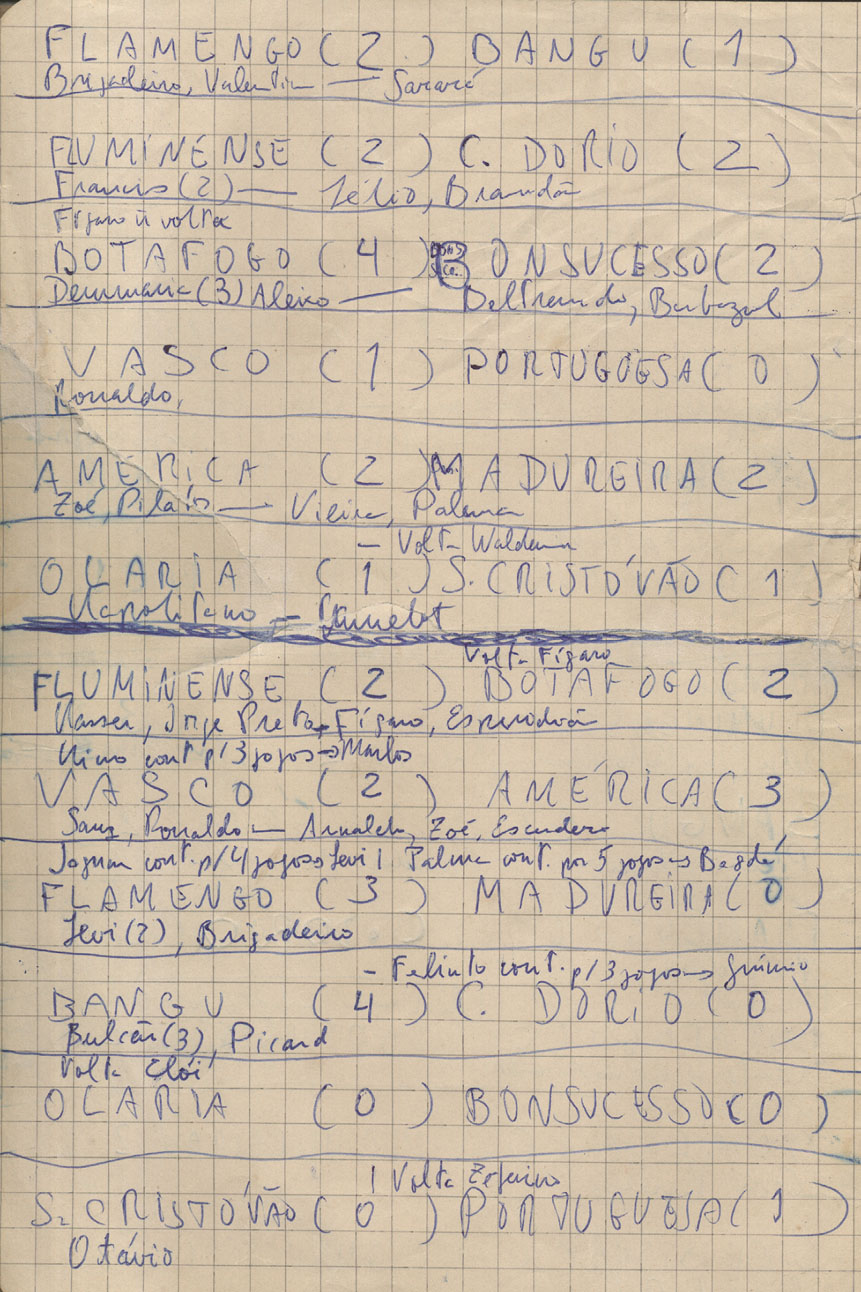 FLAMENGO ( 2 ) BANGU ( 1 )
Brigadeiro, Valentim — Sarará
FLUMINENSE ( 2 ) C. DO RIO ( 2 )
Francis (2) — Lélio, Brandão
Fígaro volta
BOTAFOGO ( 4 ) BONSUCESSO ( 2 )
(3) Aleixo —
VASCO ( 1 ) PORTUGUESA ( 0 )
Ronaldo,
AMÉRICA ( 2 ) MADUREIRA ( 2 )
Zoé, Pilás — Vieira, Palma
— Volta
OLARIA ( 1 ) S. CRISTÓVÃO ( 1 )
Napolitano —
Volta Fígaro
FLUMINENSE ( 2 ) BOTAFOGO ( 2 )
Nasser, Jorge Preto — Fígaro,
cont. p/ 3 jogos →
VASCO ( 2 ) AMÉRICA ( 3 )
Ronaldo — Arnaldo, Zoé, Escudero
cont. p/ 4 jogos → Levi | Palma cont. por 5 jogos → Bagdá
FLAMENGO ( 3 ) MADUREIRA ( 0 )
Levi (2), Brigadeiro
— Felinto cont. p/ 3 jogos →
BANGU ( 4 ) C. DO RIO ( 0 )
Bulcão (3), Picard
Volta Elói
OLARIA ( 0 ) BONSUCESSO ( 0 )
| Volta
S. CRISTÓVÃO ( 0 ) PORTUGUESA ( 1 )
Otávio